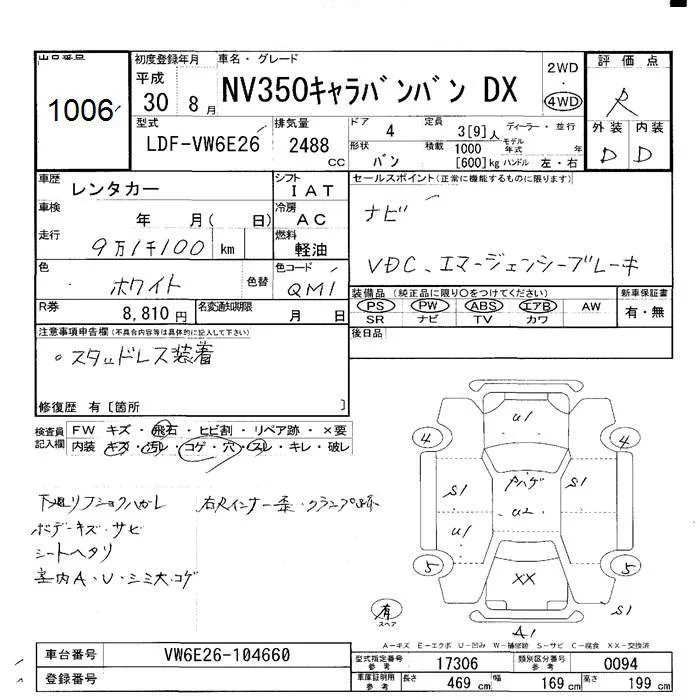 出品番号
1006
初度登録年月
平成
30 8月
車名・グレード
NV350キャラバンバン DX
2WD
・
4WD
評価点
R
外装 内装
D D
型式
LDF-VW6E26
排気量
2488
CC
ドア
4
定員
3[9]人
ディーラー・並行
モデル
年式 年
形状
バン
積載
1000
[600]kg
ハンドル 左・右
車歴
レンタカー
シフト
IAT
車検
年 月( 日)
冷房
AC
走行
9万1千100 km
燃料
軽油
色
ホワイト
色替
色コード
QM1
R券
8,810円
名変通知期限
月 日
セールスポイント(正常に機能するものに限ります)
ナビ
VDC、エマージェンシーブレーキ
装備品(純正品に限り○をつけてください)
PS PW ABS エアB AW
SR ナビ TV カワ
新車保証書
有・無
後日品
注意事項申告欄(不具合内容等は具体的に記入して下さい)
。スタッドレス装着
修復歴 有〔箇所 〕
検査員
記入欄
FW キズ・飛石・ヒビ割・リペア跡・×要
内装 キズ・汚レ・コゲ・穴・スレ・キレ・破レ
ボデーキズ・サビ
シートヘタリ
室内A・U・シミ大・コゲ
U1
4 4
S1 S1
U2
U1
5 5
XX
S1
A1
有
スペア
A-キズ E-エクボ U-凹み W-補修跡 S-サビ C-腐食 XX-交換済
車台番号
VW6E26-104660
登録番号
型式指定番号
参考
17306
類別区分番号
参考
0094
車庫証明用
参考
長さ
469cm
幅
169cm
高さ
199cm